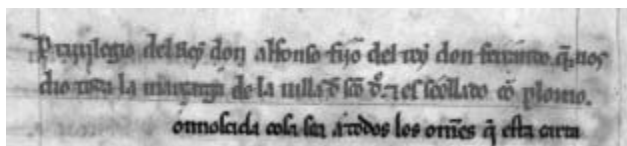 Priuilegio del Rey don alfonso fijo del rey don ferrando. q̃ nos
dio toda la de la uilla d̃ sc̃o et es seellado cõ plomo.
onnosçida cosa sea a todos los om̃es q̃ esta carta